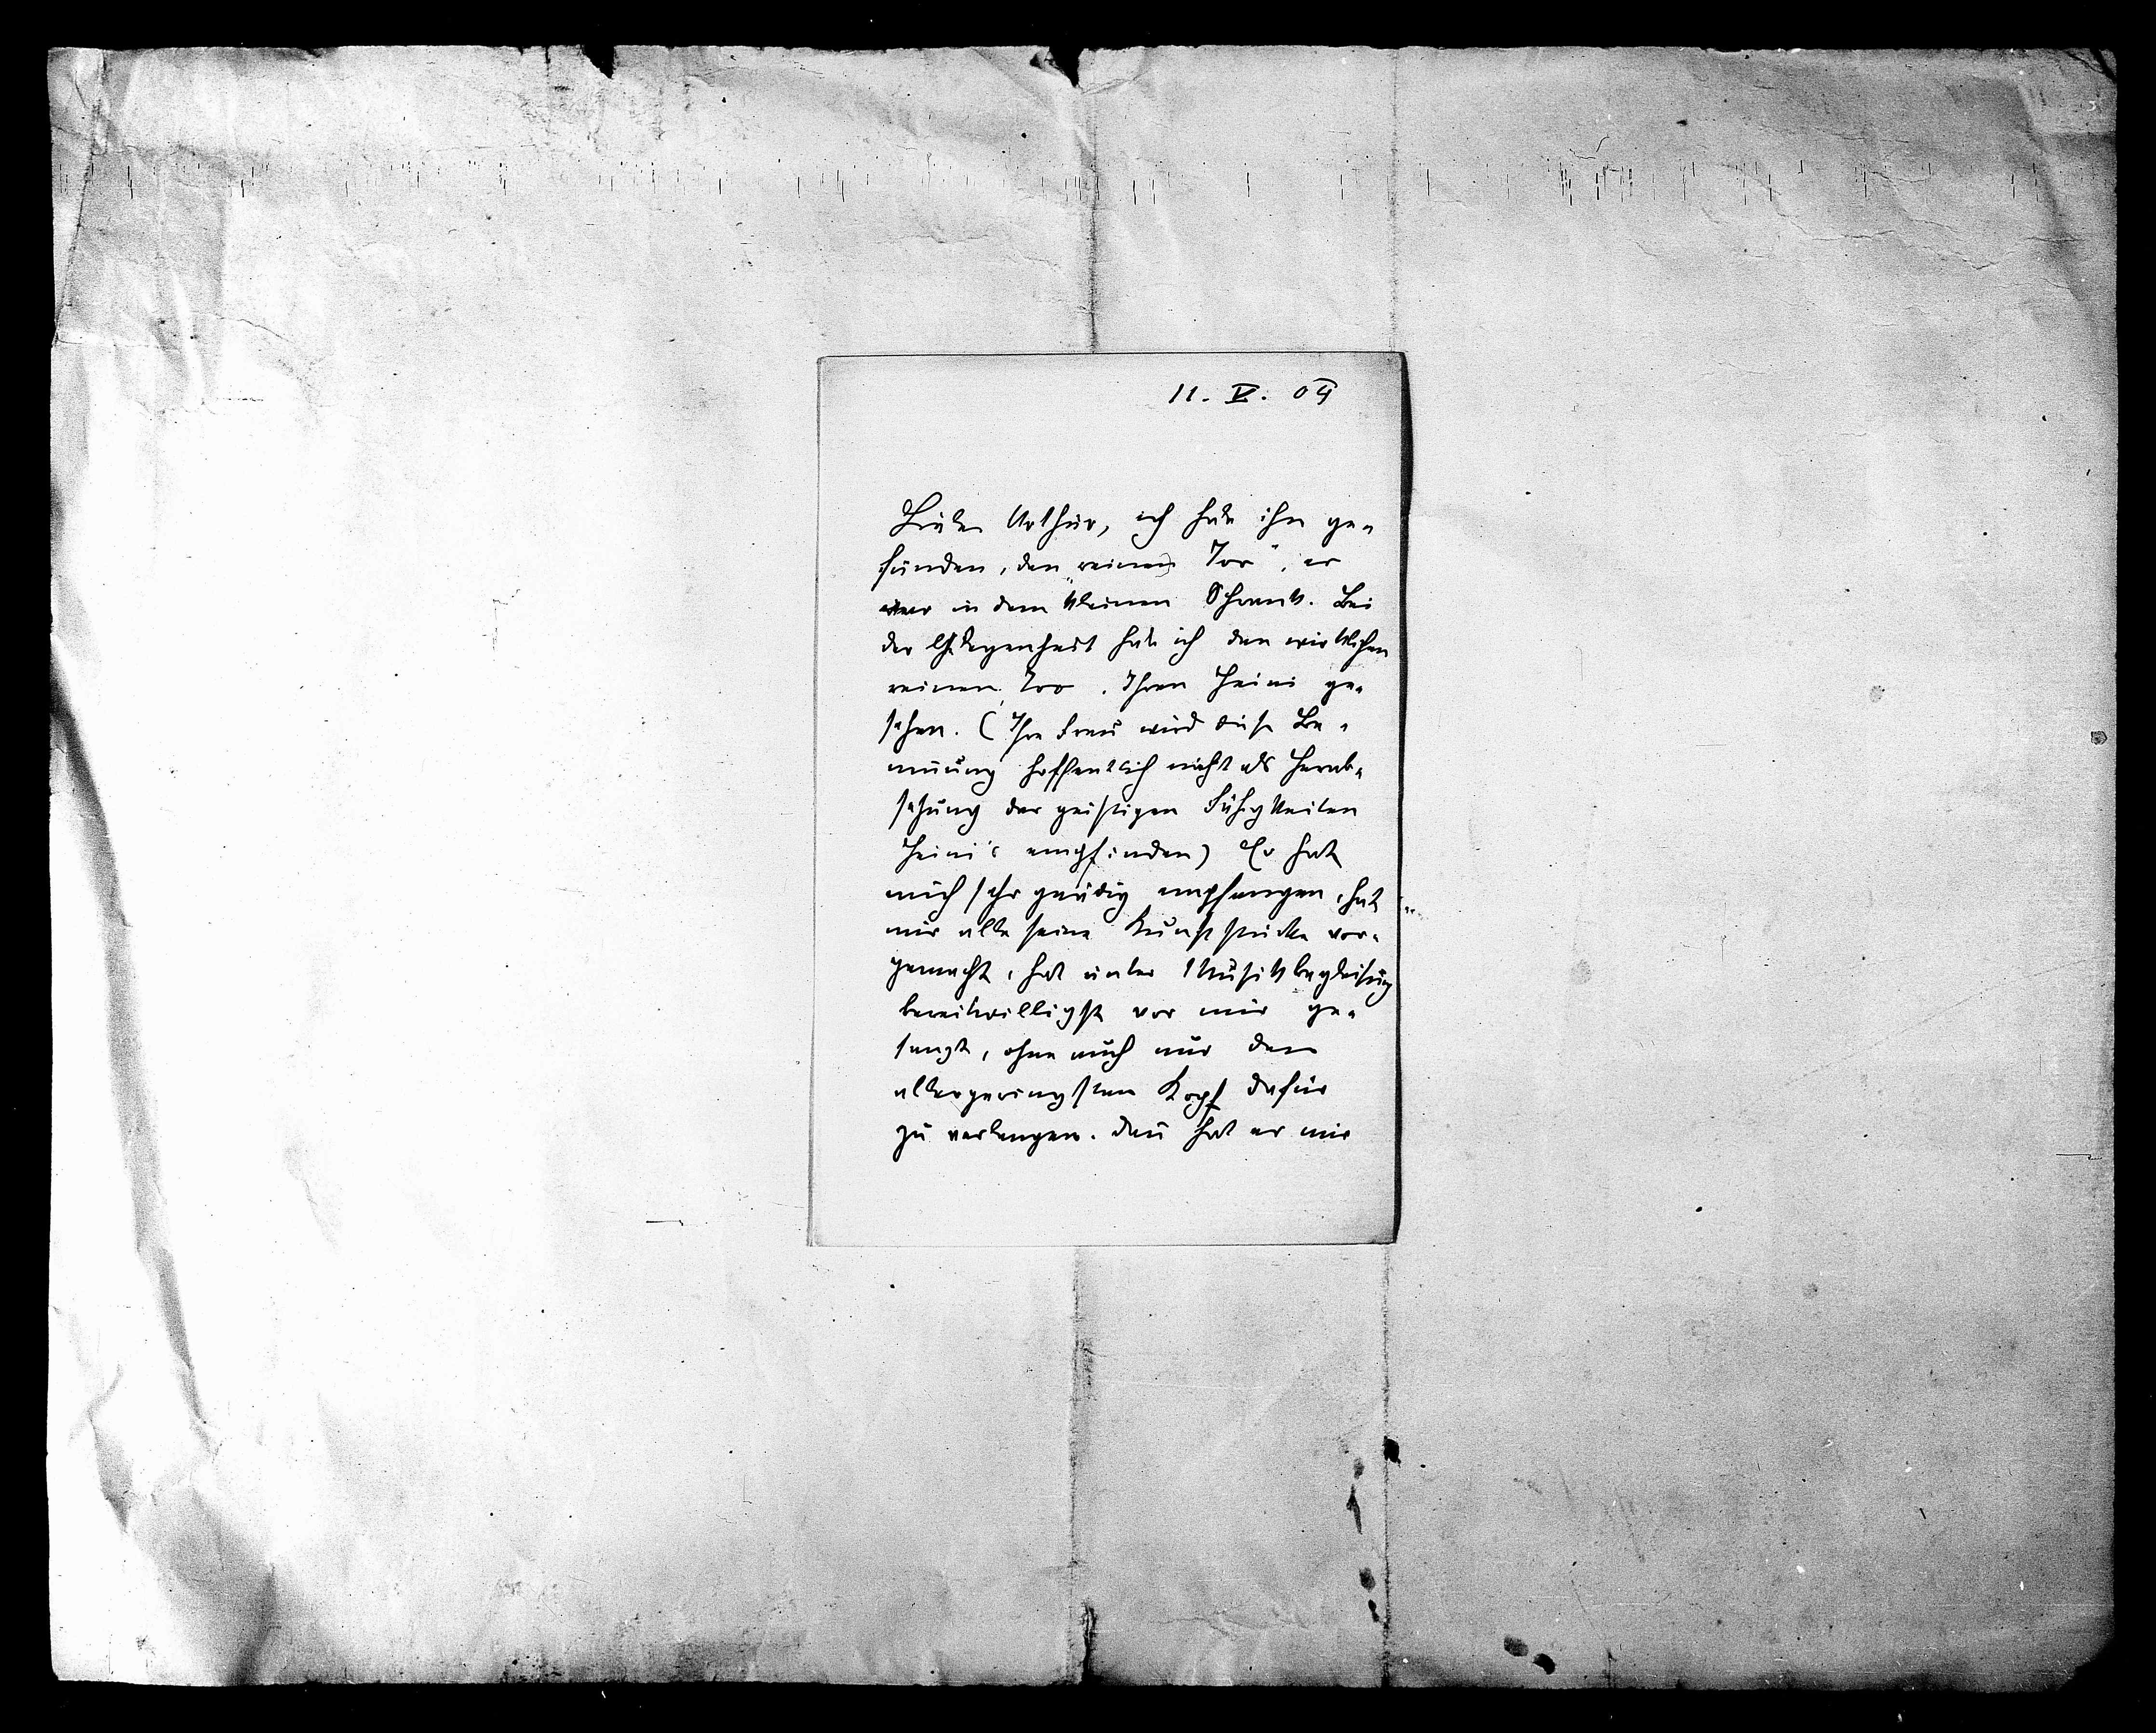 11. V. 04
Lieber Arthur, ich habe ihn ge-
funden, den „reinen Tor", er
war in dem kleinen Schrank. Bei
der Gelegenheit habe ich den wirklichen
reinen Tor, Ihren Heini ge-
sehen. (Ihre Frau wird diese Be-
nennung hoffentlich nicht als Herab-
setzung der geistigen Fähigkeiten
Heini's empfinden) Er hat
mich sehr gnädig empfangen, hat
mir alle seine Kunststücke vor-
gemacht, hat unter Musikbegleitung
bereitwilligst vor mir ge-
tanzt, ohne auch nur den
allergeringsten Kopf dafür
zu verlangen. Dann hat er mir